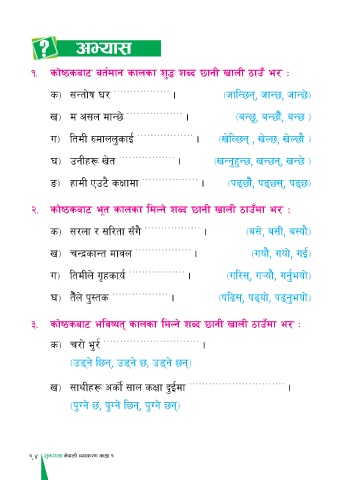 ? अभ्यास
१. कोष्ठकबाट वर्तमान कालका शुद्ध शब्द छानी खाली ठाउँ भर :
क) सन्तोष घर ................ । (जान्छिन्, जान्छ, जान्छे)
ख) म असल मान्छे ................ । (बन्छु, बन्छौं, बन्छ )
ग) तिमी रुमाललुकाई ................ । (खेल्छिन् , खेल्छ, खेल्छौ )
घ) उनीहरू खेत ................ । (खन्नुहुन्छ, खन्छन्, खन्छे )
ङ) हामी एउटै कक्षामा ................ । (पढ्छौं, पढ्छस्, पढ्छ)
२. कोष्ठकबाट भूत कालका मिल्ने शब्द छानी खाली ठाउँमा भर :
क) सरला र सरिता सँगै ................ । (बसे, बसी, बस्यौ)
ख) चन्द्रकान्त मावल ................ । (गयौ, गयो, गई)
ग) तिमीले गृहकार्य ................ । (गरिस्, गऱ्यौ, गर्नुभयो)
घ) तैँले पुस्तक ................ । (पढिस्, पढ्यो, पढ्नुभयो)
३. कोष्ठकबाट भविष्यत् कालका मिल्ने शब्द छानी खाली ठाउँमा भर :
क) चरो भुर्र ............................ ।
(उड्ने छिन्, उड्ने छ, उड्ने छन्)
ख) साथीहरू अर्को साल कक्षा दुईमा ............................ ।
(पुग्ने छ, पुग्ने छिन्, पुग्ने छन्)
९४ नेपाली व्याकरण कक्षा १